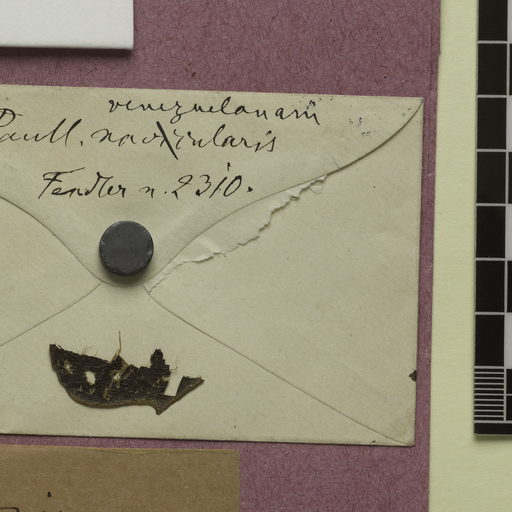 venezuelanum
Paull. navicularis
Fendler n. 2310.